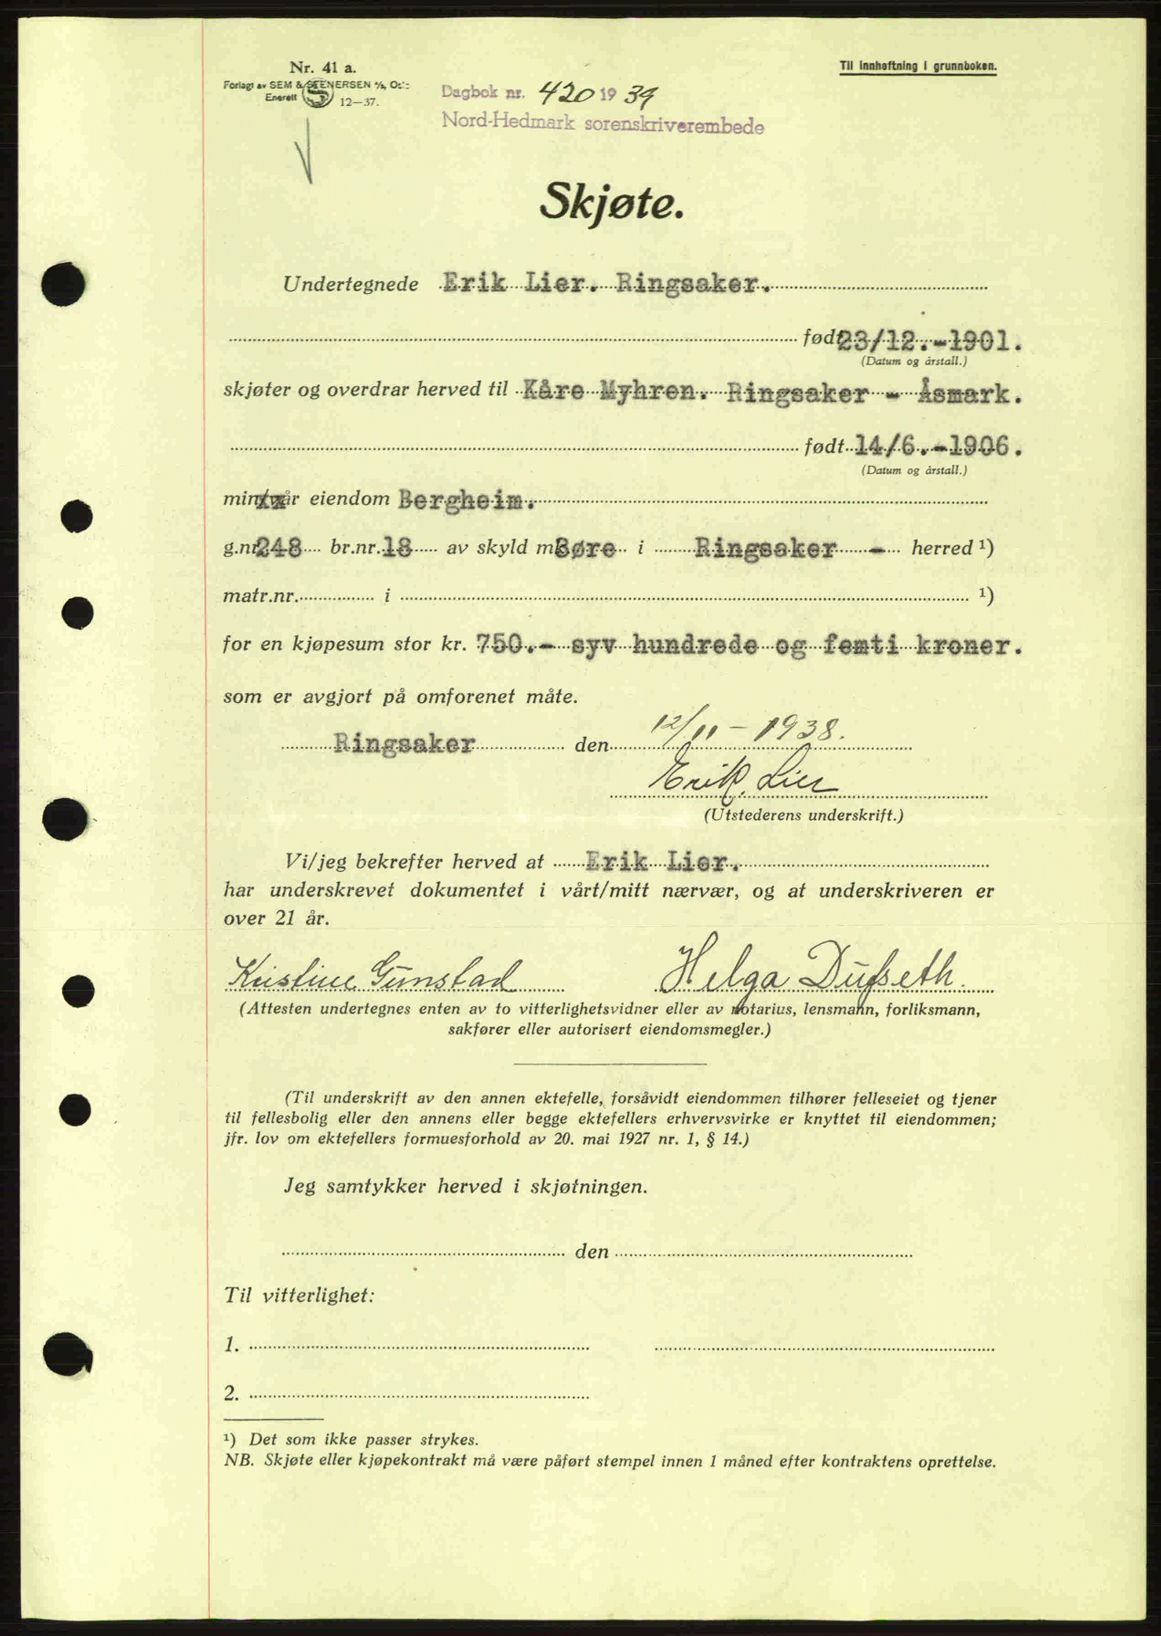 Nr. 41 a.
Forlagt av SEM & STENERSEN A/S, Oslo
Enerett 12—37.
Til innheftning i grunnboken.
Dagbok nr. 420 1939
Nord-Hedmark sorenskriverembede
Skjøte.
Undertegnede Erik Lier. Ringsaker.
født 23/12.-1901.
(Datum og årstall.)
skjøter og overdrar herved til Kåre Myhren. Ringsaker - Åsmark.
født 14/6.-1906.
(Datum og årstall.)
min/vår eiendom Bergheim.
g.nr. 248 br.nr. 18 av skyld m. 3øre i Ringsaker - herred ¹)
matr.nr. i ¹)
for en kjøpesum stor kr. 750.- syv hundrede og femti kroner.
som er avgjort på omforenet måte.
Ringsaker den 12/11 - 1938.
Erik Lier
(Utstederens underskrift.)
Vi/jeg bekrefter herved at Erik Lier.
har underskrevet dokumentet i vårt/mitt nærvær, og at underskriveren er
over 21 år.
Kristine Gunstad Helga Dufseth.
(Attesten undertegnes enten av to vitterlighetsvidner eller av notarius, lensmann, forliksmann,
sakfører eller autorisert eiendomsmegler.)
(Til underskrift av den annen ektefelle, forsåvidt eiendommen tilhører felleseiet og tjener
til fellesbolig eller den annens eller begge ektefellers erhvervsvirke er knyttet til eiendommen;
jfr. lov om ektefellers formuesforhold av 20. mai 1927 nr. 1, § 14.)
Jeg samtykker herved i skjøtningen.
den
Til vitterlighet:
1.
2.
¹) Det som ikke passer strykes.
NB. Skjøte eller kjøpekontrakt må være påført stempel innen 1 måned efter kontraktens oprettelse.